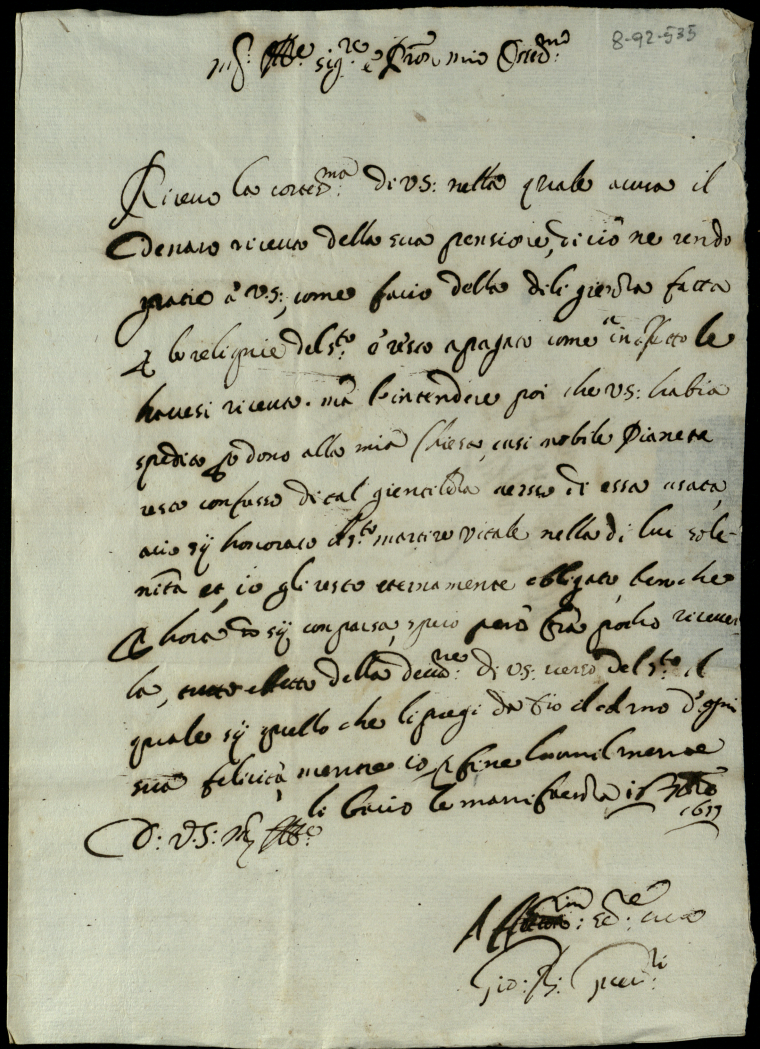 8-92-535
M: Ill.re sig.re e Pron mio Oss.mo
Ricevo la cortes.ma di VS: nella quale acusa il
denaro ricevuto della sua pensione, di ciò ne rendo
gratie à V.S:, come facio della diligienza fatta
le relignie del s.to e resto apagato come in effetto le
havesi ricevute. mà l'intendere poi che VS: habia
spedito in dono alla mia Chiesa, cusi nobile Pianeta
resto confusso di tal gientileza versso di essa usata,
acio sij honorato il s.to martire Vitale nella di lui sole-
nità et io gli resto eternamente obligato, benche
hora no sij comparsa, spero però frà pocho ricever-
la, tutto effetto della devo.ne di VS: verso del s.to il
quale sij quello che li pregi da Dio il colmo d'ogni
sua felicità, mentre io p fine humilmente
li bacio le mani faenza
D: V.S: M Ill.re
Aff: se.re
Gio: B: